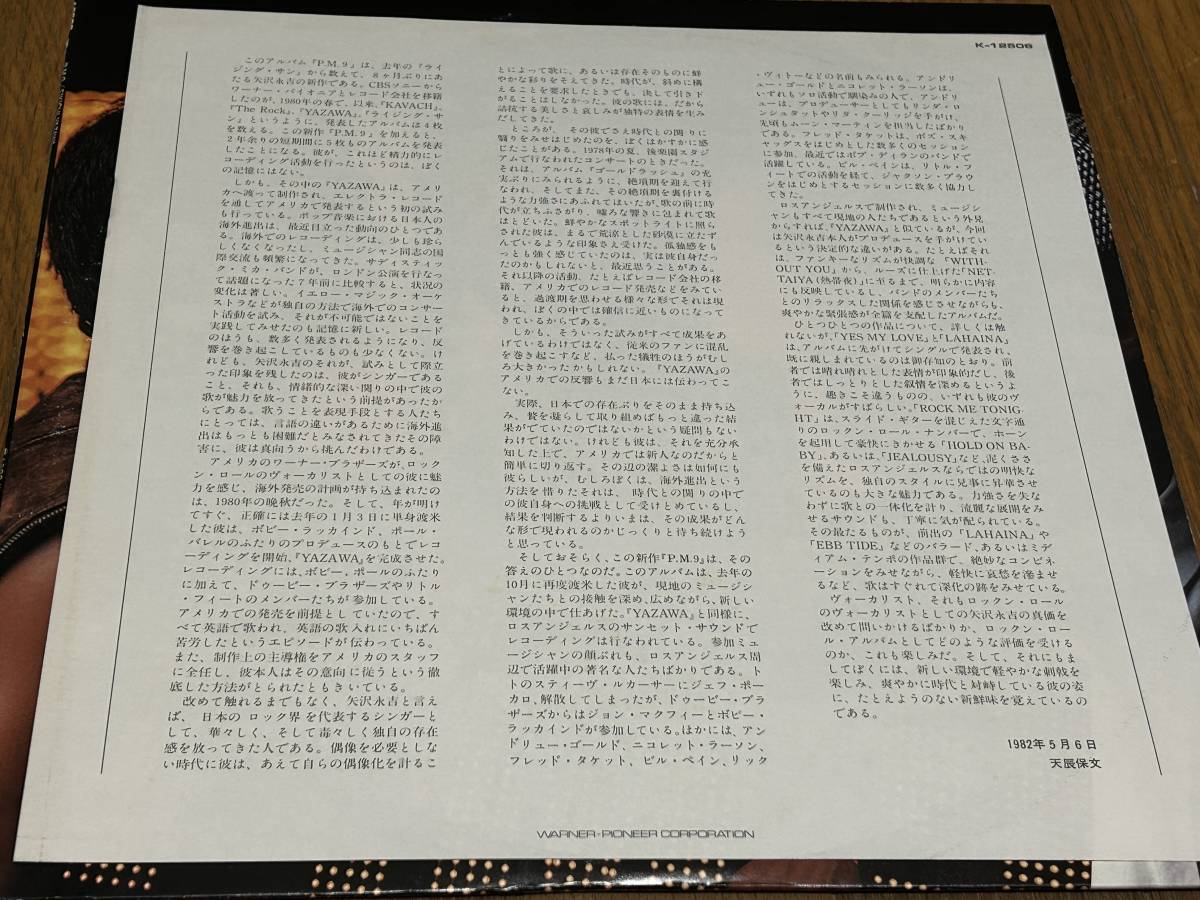 K-12506
このアルバム『P.M.9』は、去年の『ライ
ジング・サン』から数えて、8ヶ月ぶりにあ
たる矢沢永吉の新作である。CBSソニーから
ワーナー・パイオニアとレコード会社を移籍
したのが、1980年の春で、以来、『KAVACH』、
『The Rock』、『YAZAWA』、『ライジング・サ
ン』というように、発表したアルバムは4枚
を数える。この新作『P.M.9』を加えると、
2年余りの短期間に5枚ものアルバムを発表
したことになる。彼が、これほど精力的にレ
コーディング活動を行ったというのは、ぼく
の記憶にはない。
しかも、その中の『YAZAWA』は、アメリ
カへ渡って制作され、エレクトラ・レコード
を通してアメリカで発表するという初の試み
も行っている。ポップ音楽における日本人の
海外進出は、最近目立った動向のひとつであ
る。海外でのレコーディングは、少しも珍ら
しくなくなったし、ミュージシャン同志の国
際交流も頻繁になってきた。サディスティッ
ク・ミカ・バンドが、ロンドン公演を行なっ
て話題になった7年前に比較すると、状況の
変化は著しい。イエロー・マジック・オーケ
ストラなどが独自の方法で海外でのコンサー
ト活動を試み、それが不可能ではないことを
実践してみせたのも記憶に新しい。レコード
のほうも、数多く発表されるようになり、反
響を巻き起こしているものも少なくない。け
れども、矢沢永吉のそれが、試みとして際立
った印象を残したのは、彼がシンガーである
こと、それも、情緒的な深い関りの中で彼の
歌が魅力を放ってきたという前提があったか
らである。歌うことを表現手段とする人たち
にとっては、言語の違いがあるために海外進
出はもっとも困難だとみなされてきたその障
害に、彼は真向うから挑んだわけである。
アメリカのワーナー・ブラザーズが、ロック
ン・ロールのヴォーカリストとしての彼に魅
力を感じ、海外発売の計画が持ち込まれたの
は、1980年の晩秋だった。そして、年が明け
てすぐ、正確には去年の1月3日に単身渡米
した彼は、ボビー・ラッカインド、ポール・
バレルのふたりのプロデュースのもとでレコ
ーディングを開始、『YAZAWA』を完成させた。
レコーディングには、ボビー、ポールのふたり
に加えて、ドゥービー・ブラザーズやリトル
・フィートのメンバーたちが参加している。
アメリカでの発売を前提としていたので、す
べて英語で歌われ、英語の歌入れにいちばん
苦労したというエピソードが伝わっている。
また、制作上の主導権をアメリカのスタッフ
に全任し、彼本人はその意向に従うという徹
底した方法がとられたともきいている。
改めて触れるまでもなく、矢沢永吉と言え
ば、日本のロック界を代表するシンガーと
して、華々しく、そして毒々しく独自の存在
感を放ってきた人である。偶像を必要としな
い時代に彼は、あえて自らの偶像化を計るこ
とによって歌に、あるいは存在そのものに鮮
やかな彩りをそえてきた。時代が、斜めに構
えることを要求したときでも、決して引き下
がることはしなかった。彼の歌には、だから
詰抗する美しさと哀しみが独特の表情を生み
だしてきた。
ところが、その彼でさえ時代との関りに
翳りをみせはじめたのを、ぼくはかすかに感
じたことがある。1978年の夏、後楽園スタジ
アムで行なわれたコンサートのときだった。
それは、アルバム『ゴールドラッシュ』の充
実ぶりにみられるように、絶頂期を迎えて行
なわれ、そしてまた、その絶頂期を裏付ける
ような力強さにあふれてはいたが、歌の前に時
代が立ちふさがり、嘘ろな響きに包まれて歌
はとどいた。鮮やかなスポットライトに照ら
された彼は、まるで荒涼とした砂漠に立たず
んでいるような印象さえ受けた。孤独感をも
っとも強く感じていたのは、実は彼自身だっ
たのかもしれないと、最近思うことがある。
それ以降の活動、たとえばレコード会社の移
籍、アメリカでのレコード発売などをみてい
ると、過渡期を思わせる様々な形でそれは現
われ、ぼくの中では確信に近いものになって
きているからである。
しかも、そういった試みがすべて成果をあ
げているわけではなく、従来のファンに混乱
を巻き起こすなど、払った犠牲のほうがむし
ろ大きかったかもしれない。『YAZAWA』の
アメリカでの反響もまだ日本には伝わってこ
ない。
実際、日本での存在ぶりをそのまま持ち込
み、贅を凝らして取り組めばもっと違った結
果がでていたのではないかという疑問もない
わけではない。けれども彼は、それを充分承
知した上で、アメリカでは新人なのだからと
簡単に切り返す。その辺の潔よさは如何にも
彼らしいが、むしろぼくは、海外進出という
方法を借りたそれは、時代との関りの中で
の彼自身への挑戦として受けとめているし、
結果を判断するよりいまは、その成果がどん
な形で現われるのかじっくりと待ち続けよう
と思っている。
そしておそらく、この新作『P.M.9』は、その
答えのひとつなのだ。このアルバムは、去年の
10月に再度渡米した彼が、現地のミュージシ
ャンたちとの接触を深め、広めながら、新しい
環境の中で仕あげた。『YAZAWA』と同様に、
ロスアンジェルスのサンセット・サウンドで
レコーディングは行なわれている。参加ミュ
ージシャンの顔ぶれも、ロスアンジェルス周
辺で活躍中の著名な人たちばかりである。ト
トのスティーヴ・ルカーサーにジェフ・ポー
カロ、解散してしまったが、ドゥービー・ブラ
ザーズからはジョン・マクフィーとボビー・
ラッカインドが参加している。ほかには、アン
ドリュー・ゴールド、ニコレット・ラーソン、
フレッド・タケット、ビル・ペイン、リック
・ヴィトーなどの名前もみられる。アンドリ
ュー・ゴールドとニコレット・ラーソンは、
いずれもソロ活動で馴染みの人で、アンドリ
ューは、プロデューサーとしてもリンダ・ロ
ンシュタットやリタ・クーリッジを手がけ、
先頃もムーン・マーティンを担当したばかり
である。フレッド・タケットは、ボズ・スキ
ャッグスをはじめとした数多くのセッション
に参加、最近ではボブ・ディランのバンドで
活躍している。ビル・ペインは、リトル・フ
ィートでの活動を経て、ジャクソン・ブラウ
ンをはじめとするセッションに数多く協力し
てきた。
ロスアンジェルスで制作され、ミュージシ
ャンもすべて現地の人たちであるという外見
からすれば、『YAZAWA』と似ているが、今回
は矢沢永吉本人がプロデュースを手がけてい
るという決定的な違いがある。たとえばそれ
は、ファンキーなリズムが快調な「WITH-
OUT YOU」から、ルーズに仕上げた「NET-
TAIYA(熱帯夜)」に至るまで、明らかに内容
にも反映しているし、バンドのメンバーたち
とのリラックスした関係を感じさせながらも、
爽やかな緊張感が全篇を支配したアルバムだ。
ひとつひとつの作品について、詳しくは触
れないが、「YES MY LOVE」と「LAHAINA」
は、アルバムに先がけてシングルで発表され、
既に親しまれているのは御存知のとおり。前
者では晴れ晴れとした表情が印象的だし、後
者ではしっとりとした叙情を深めるというよ
うに、趣きこそ違うものの、いずれも彼のヴ
ォーカルがすばらしい。「ROCK ME TONIG-
HT」は、スライド・ギターを混じえた文字通
りのロックン・ロール・ナンバーで、ホーン
を起用して豪快にきかせる「HOLD ON BA-
BY」、あるいは、「JEALOUSY」など、泥くささ
を備えたロスアンジェルスならではの明快な
リズムを、独自のスタイルに見事に昇華させ
ているのも大きな魅力である。力強さを失な
わずに歌との一体化を計り、流麗な展開をみ
せるサウンドも、丁寧に気が配られている。
その最たるものが、前出の「LAHAINA」や
「EBB TIDE」などのバラード、あるいはミデ
ィアム・テンポの作品群で、絶妙なコンビネ
ーションをみせながら、軽快に哀愁を滲ませ
るなど、歌はすぐれて深化の跡をみせている。
ヴォーカリスト、それもロックン・ロール
のヴォーカリストとしての矢沢永吉の真価を
改めて問いかけるばかりか、ロックン・ロー
ル・アルバムとしてどのような評価を受ける
のか、これも楽しみだ。そして、それにもま
してぼくには、新しい環境で軽やかな刺戟を
楽しみ、爽やかに時代と対峙している彼の姿
に、たとえようのない新鮮味を覚えているの
である。
1982年5月6日
天辰保文
WARNER-PIONEER CORPORATION